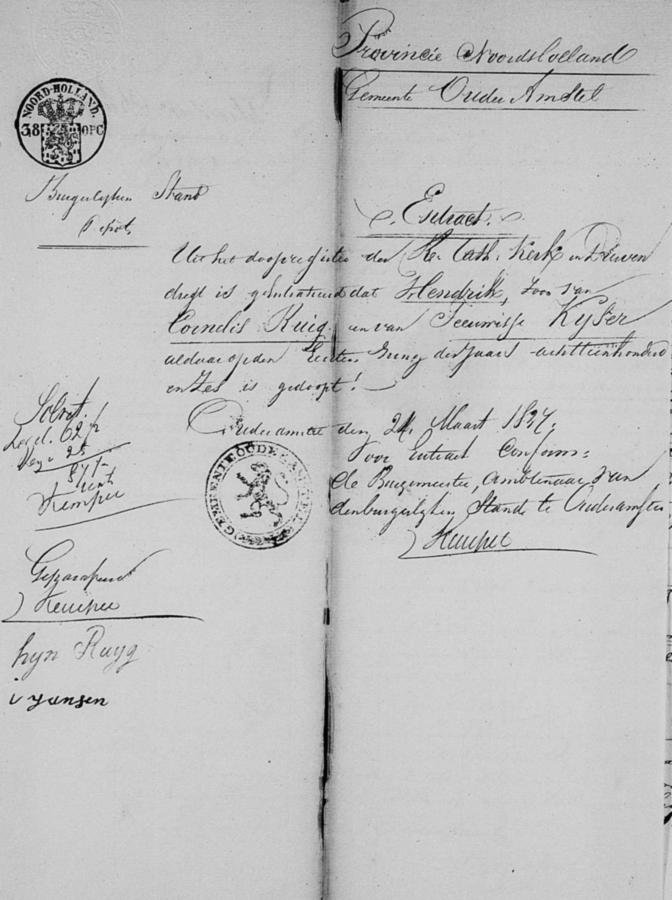 Provincie Noordholland
Gemeente Ouder Amstel
NOORD-HOLLAND.
38 OPC
Burgerlyken Stand
Extract.
Uit het doopregister der R. Cath. Kerk in Duiven
dregt is geextraheerd dat Hendrik, zoon van
Cornelis Ruig en van Teeuwisje Kyser
aldaar op den Juny des jaars achttienhonderd
en zes is gedoopt!
Ouderamstel den 24 Maart 1837.
Voor extract Conform:
de Burgemeester, Ambtenaar van
den burgerlyken Stand te Ouderamstel
Kemper
GEMEENTE OUDER AMSTEL
Solvit.
Zegel. 62½
Leg. 25
87½
cent
Kemper
Geparafeerd
Kemper
hyn Ruyg
i Jansen